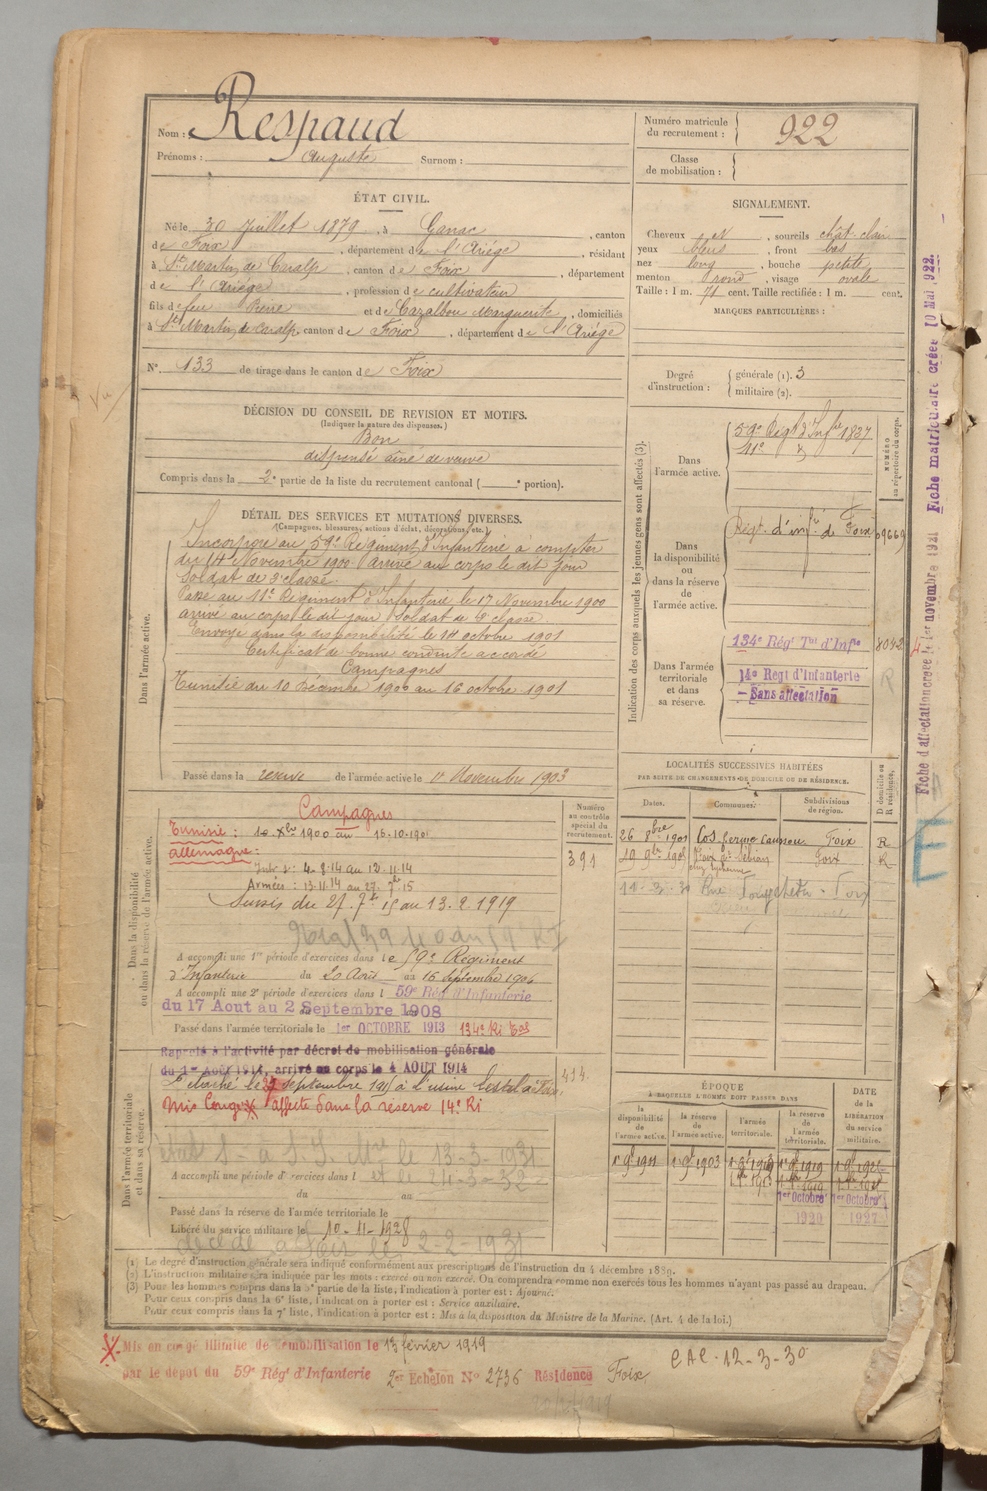 Nom : Respaud
Prénoms : Auguste Surnom :
Numéro matricule du recrutement : 922
Classe de mobilisation :
ÉTAT CIVIL.
Né le 30 Juillet 1879, à Ganac, canton
de Foix, département de l'Ariége, résidant
à St Martin de Caralp, canton de Foix, département
de l'Ariége, profession de cultivateur
fils de feu Pierre et de Cazalbou Marguerite, domiciliés
à St Martin de Caralp, canton de Foix, département de l'Ariége
N° 133 de tirage dans le canton de Foix
DÉCISION DU CONSEIL DE REVISION ET MOTIFS.
(Indiquer la nature des dispenses.)
Bon
dispensé aîné de veuve
Compris dans la 2e partie de la liste du recrutement cantonal ( e portion).
SIGNALEMENT.
Cheveux , sourcils chât. clair
yeux bleus , front bas
nez long , bouche petite
menton rond , visage ovale
Taille : 1 m. 71 cent. Taille rectifiée : 1 m. cent.
MARQUES PARTICULIÈRES :
Degré d'instruction : générale (1). 3
militaire (2).
DÉTAIL DES SERVICES ET MUTATIONS DIVERSES.
(Campagnes, blessures, actions d'éclat, décorations, etc.)
Dans l'armée active.
Incorporé au 59e Régiment d'Infanterie à compter
du 14 Novembre 1900. Arrivé au corps le dit jour
Soldat de 2e classe.
Passé au 11e Régiment d'Infanterie le 17 Novembre 1900
arrivé au corps le dit jour Soldat de 2e classe.
Envoyé dans la disponibilité le 18 octobre 1901
Certificat de bonne conduite accordé
Campagnes
Tunisie du 10 Décembre 1900 au 16 octobre 1901
Passé dans la réserve de l'armée active le 1er Novembre 1903
Indication des corps auxquels les jeunes gens sont affectés (3).
NUMÉRO au répertoire du corps.
Dans l'armée active.
59e Régt d'Infrie 1837
11e
Dans la disponibilité ou dans la réserve de l'armée active.
Régt. d'infie de Foix 09669
Dans l'armée territoriale et dans sa réserve.
134e Régt Tal d'Infie 8042
14e Regt d'Infanterie
Sans affectation
R
LOCALITÉS SUCCESSIVES HABITÉES
PAR SUITE DE CHANGEMENTS DE DOMICILE OU DE RÉSIDENCE.
Dates. Communes. Subdivisions de région. D domicile ou R résidence.
26 8bre 1901 Foix R
19 9bre 1905 Foix R
11-3-30 Rue Foix
Dans la disponibilité ou dans la réserve de l'armée active.
Numéro au contrôle spécial du recrutement.
391
Campagnes
Tunisie : 10 Xbre 1900 au 16-10-1901
Allemagne :
Intr : 4-8-14 au 12-11-14
Armées : 13-11-14 au 27-7bre-15
Sursis du 27 7bre 15 au 13.2.1919
A accompli une 1re période d'exercices dans le 59e Régiment
d'Infanterie du 20 Août au 16 Septembre 1906
A accompli une 2e période d'exercices dans l 59e Rég d'Infanterie
du 17 Aout au 2 Septembre 1908
Passé dans l'armée territoriale le 1er OCTOBRE 1913 134e Ri Tal
Dans l'armée territoriale et dans sa réserve.
Rappelé à l'activité par décret de mobilisation générale
du 1er Août 1914, arrivé au corps le 4 AOUT 1914
Détaché le 27 Septembre 1915 à l'usine à Foix 414
Mis congé X affecté dans la réserve 14e Ri
le 13-3-1931
A accompli une période d'exercices dans l
du au
Passé dans la réserve de l'armée territoriale le
Libéré du service militaire le 10-11-1928
décédé à Foix le 2-2-1931
ÉPOQUE
A LAQUELLE L'HOMME DOIT PASSER DANS
la disponibilité de l'armée active. la réserve de l'armée active. l'armée territoriale. la réserve de l'armée territoriale. DATE de la LIBÉRATION du service militaire.
1er Octobre 1er Octobre
1920 1927
(1) Le degré d'instruction générale sera indiqué conformément aux prescriptions de l'instruction du 4 décembre 1889.
(2) L'instruction militaire sera indiquée par les mots : exercé ou non exercé. On comprendra comme non exercés tous les hommes n'ayant pas passé au drapeau.
(3) Pour les hommes compris dans la 3e partie de la liste, l'indication à porter est : Ajourné.
Pour ceux compris dans la 6e liste, l'indication à porter est : Service auxiliaire.
Pour ceux compris dans la 7e liste, l'indication à porter est : Mis à la disposition du Ministre de la Marine. (Art. 4 de la loi.)
X Mis en congé illimité de démobilisation le 13 février 1919
par le dépôt du 59e Régt d'Infanterie 2er Echelon N° 2736 Résidence Foix
CAC - 12-3-30
Fiche d'affectation créée le 1er novembre 1921 Fiche matriculaire créée 10 Mai 1922.
E